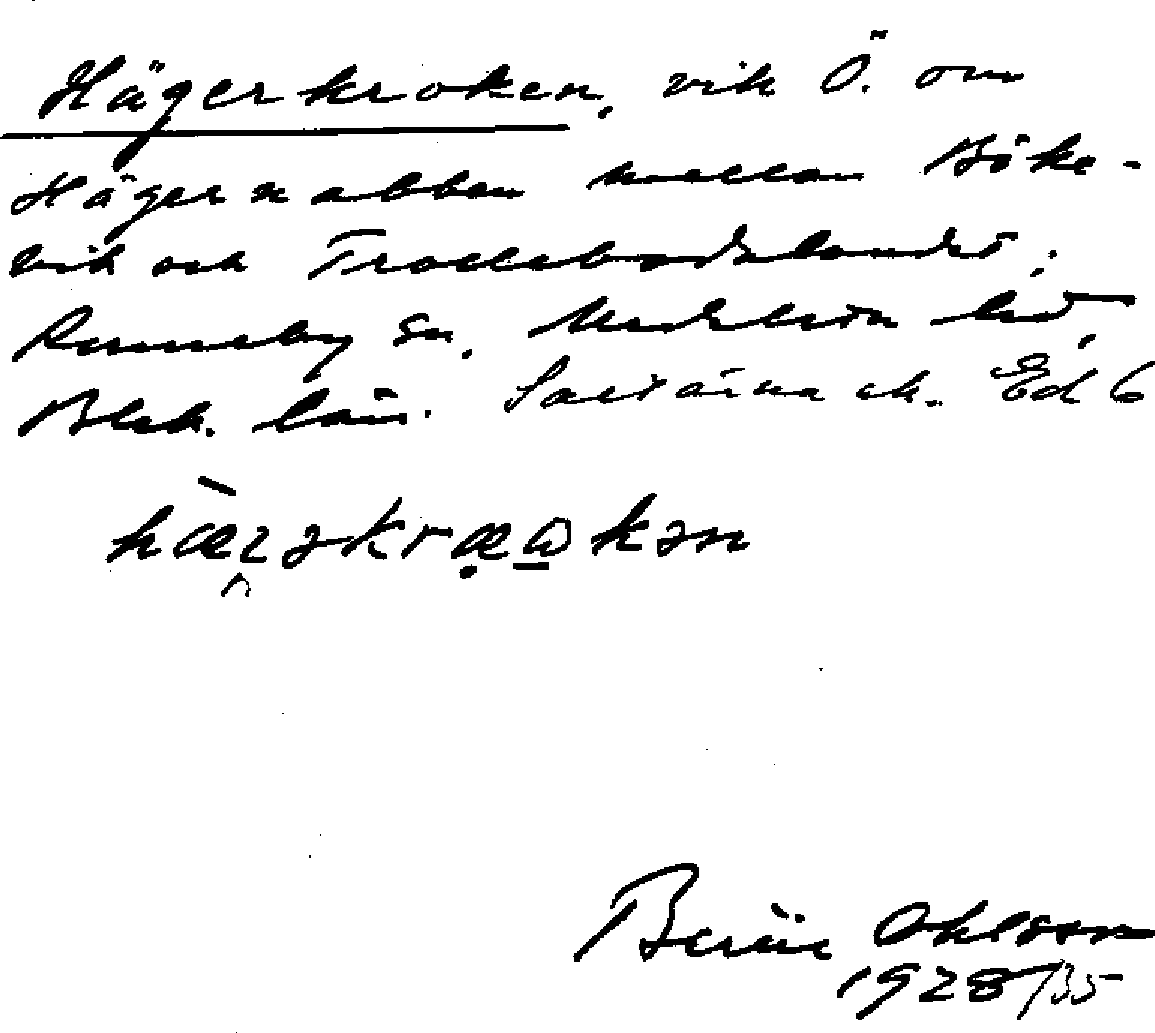 Hägerkroken, vik Ö. om
Hägernabben mellan Böke-
vik och Trollebodalandet;
Ronneby sn, Medelsta hd,
Blek. län. Saltärna ek. Ed 6
Bertil Ohlsson
1928/35